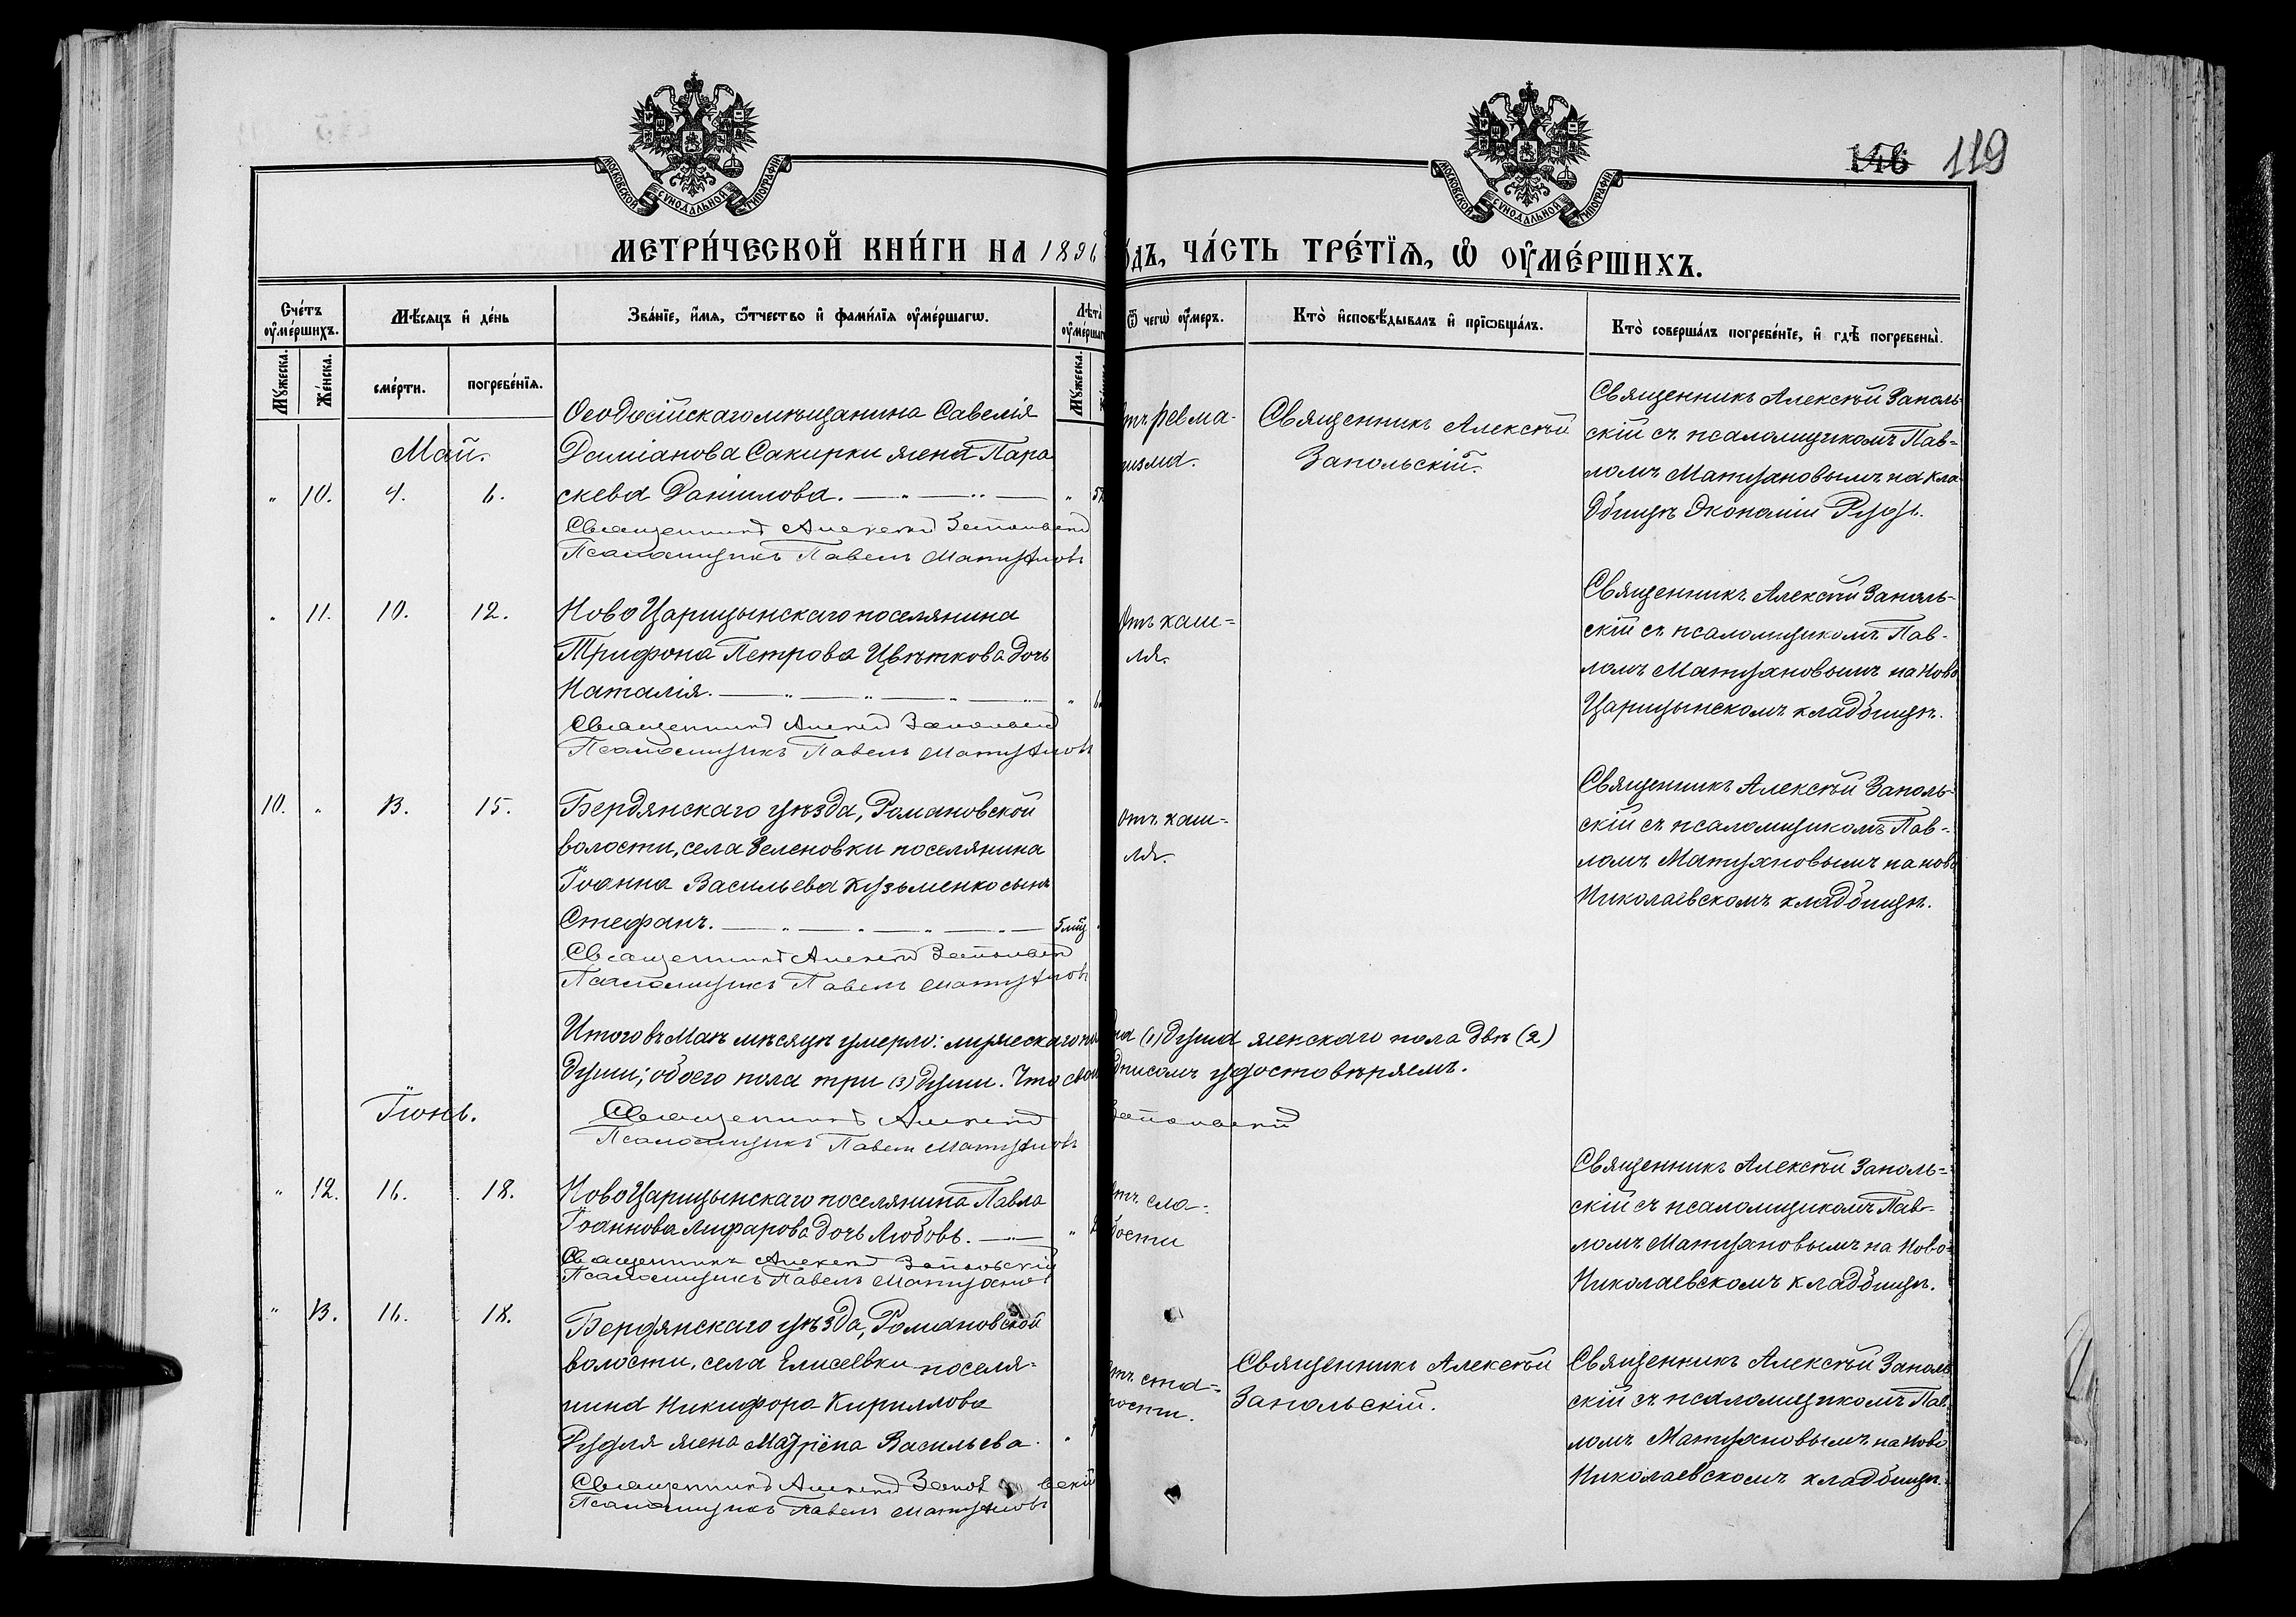 146 119
МОСКОВСКОЙ СѴНОДАЛЬНОЙ ТИПОГРАФІИ
МОСКОВСКОЙ СѴНОДАЛЬНОЙ ТИПОГРАФІИ
МЕТРИ́ЧЕСКОЙ КНИ́ГИ НА 1896
ЧА́СТЬ ТРЕ́ТЇѦ, Ѡ҆ ОУ҆МЕ́РШИХЪ.
Сче́тъ оу҆ме́ршихъ.
Мѣ́сяцъ и҆ де́нь
Зва́нїе, и҆́мя, ѻ҆́тчество и҆ фами́лїя оу҆ме́ршагѡ.
Лѣта̀
Ѿ чегѡ̀ оу҆́меръ.
Кто̀ и҆сповѣ́дывалъ и҆ прїѡбща́лъ.
Кто̀ соверша́лъ погребе́нїе, и҆ гдѣ̀ погребены̀.
Мꙋ́жеска.
Же́нска.
сме́рти.
погребе́нїя.
Мꙋ́жеска.
Май.
" 10. 4. 6.
Ѳеодосійскаго мѣщанина Савелія
Даміанова Сакирки жена Пара
скева Даніилова.
Священникъ Алексій Запольскій
Псаломщикъ Павелъ Матухновъ
Священникъ Алексѣй
Запольскій.
Священникъ Алексѣй Заполь-
скій съ псаломщикомъ Пав-
ломъ Матухновымъ на кла
дбищѣ Экономіи
" 11. 10. 12.
Ново Царицынскаго поселянина
Трифона Петрова Цвѣткова дочь
Наталія.
Священникъ Алексій Запольскій
Псаломщикъ Павелъ Матухновъ
Отъ каш-
ля.
Священникъ Алексѣй Заполь-
скій съ псаломщикомъ Пав-
ломъ Матухновымъ на Ново
Царицынскомъ кладбищѣ.
10. " 13. 15.
Бердянскаго уѣзда, Романовской
волости, села Зеленовки поселянина
Іоанна Васильева Кузьменко сынъ
Стефанъ. 5 мѣц
Священникъ Алексій Запольскій
Псаломщикъ Павелъ Матухновъ
Отъ каш-
ля.
Священникъ Алексѣй Заполь-
скій съ псаломщикомъ Пав-
ломъ Матухновымъ на ново
Николаевскомъ кладбищѣ.
Итого въ Маѣ мѣсяцѣ умерло: мужескаго (1) душа женскаго пола двѣ (2)
души; обоего пола три (3) души. Что удостовѣряемъ.
Священникъ Алексій Запольскій
Псаломщикъ Павелъ Матухновъ
Іюнь.
" 12. 16. 18.
Ново Царицынскаго поселянина Павла
Іоаннова Лифарова дочь Любовь.
Священникъ Алексій Запольскій
Псаломщикъ Павелъ Матухновъ
отъ сла-
бости
Священникъ Алексѣй Заполь-
скій съ псаломщикомъ Пав-
ломъ Матухновымъ на Ново-
Николаевскомъ кладбищѣ.
" 13. 16. 18.
Бердянскаго уѣзда, Романовской
волости, села Елисеевки поселя-
нина Никифора Кириллова
Рудля жена Матрена Васильева.
Священникъ Алексій
Псаломщикъ Павелъ Матухновъ
Священникъ Алексѣй
Запольскій.
Священникъ Алексѣй Заполь
скій съ псаломщикомъ Пав
ломъ Матухновымъ на Ново
Николаевскомъ кладбищѣ.